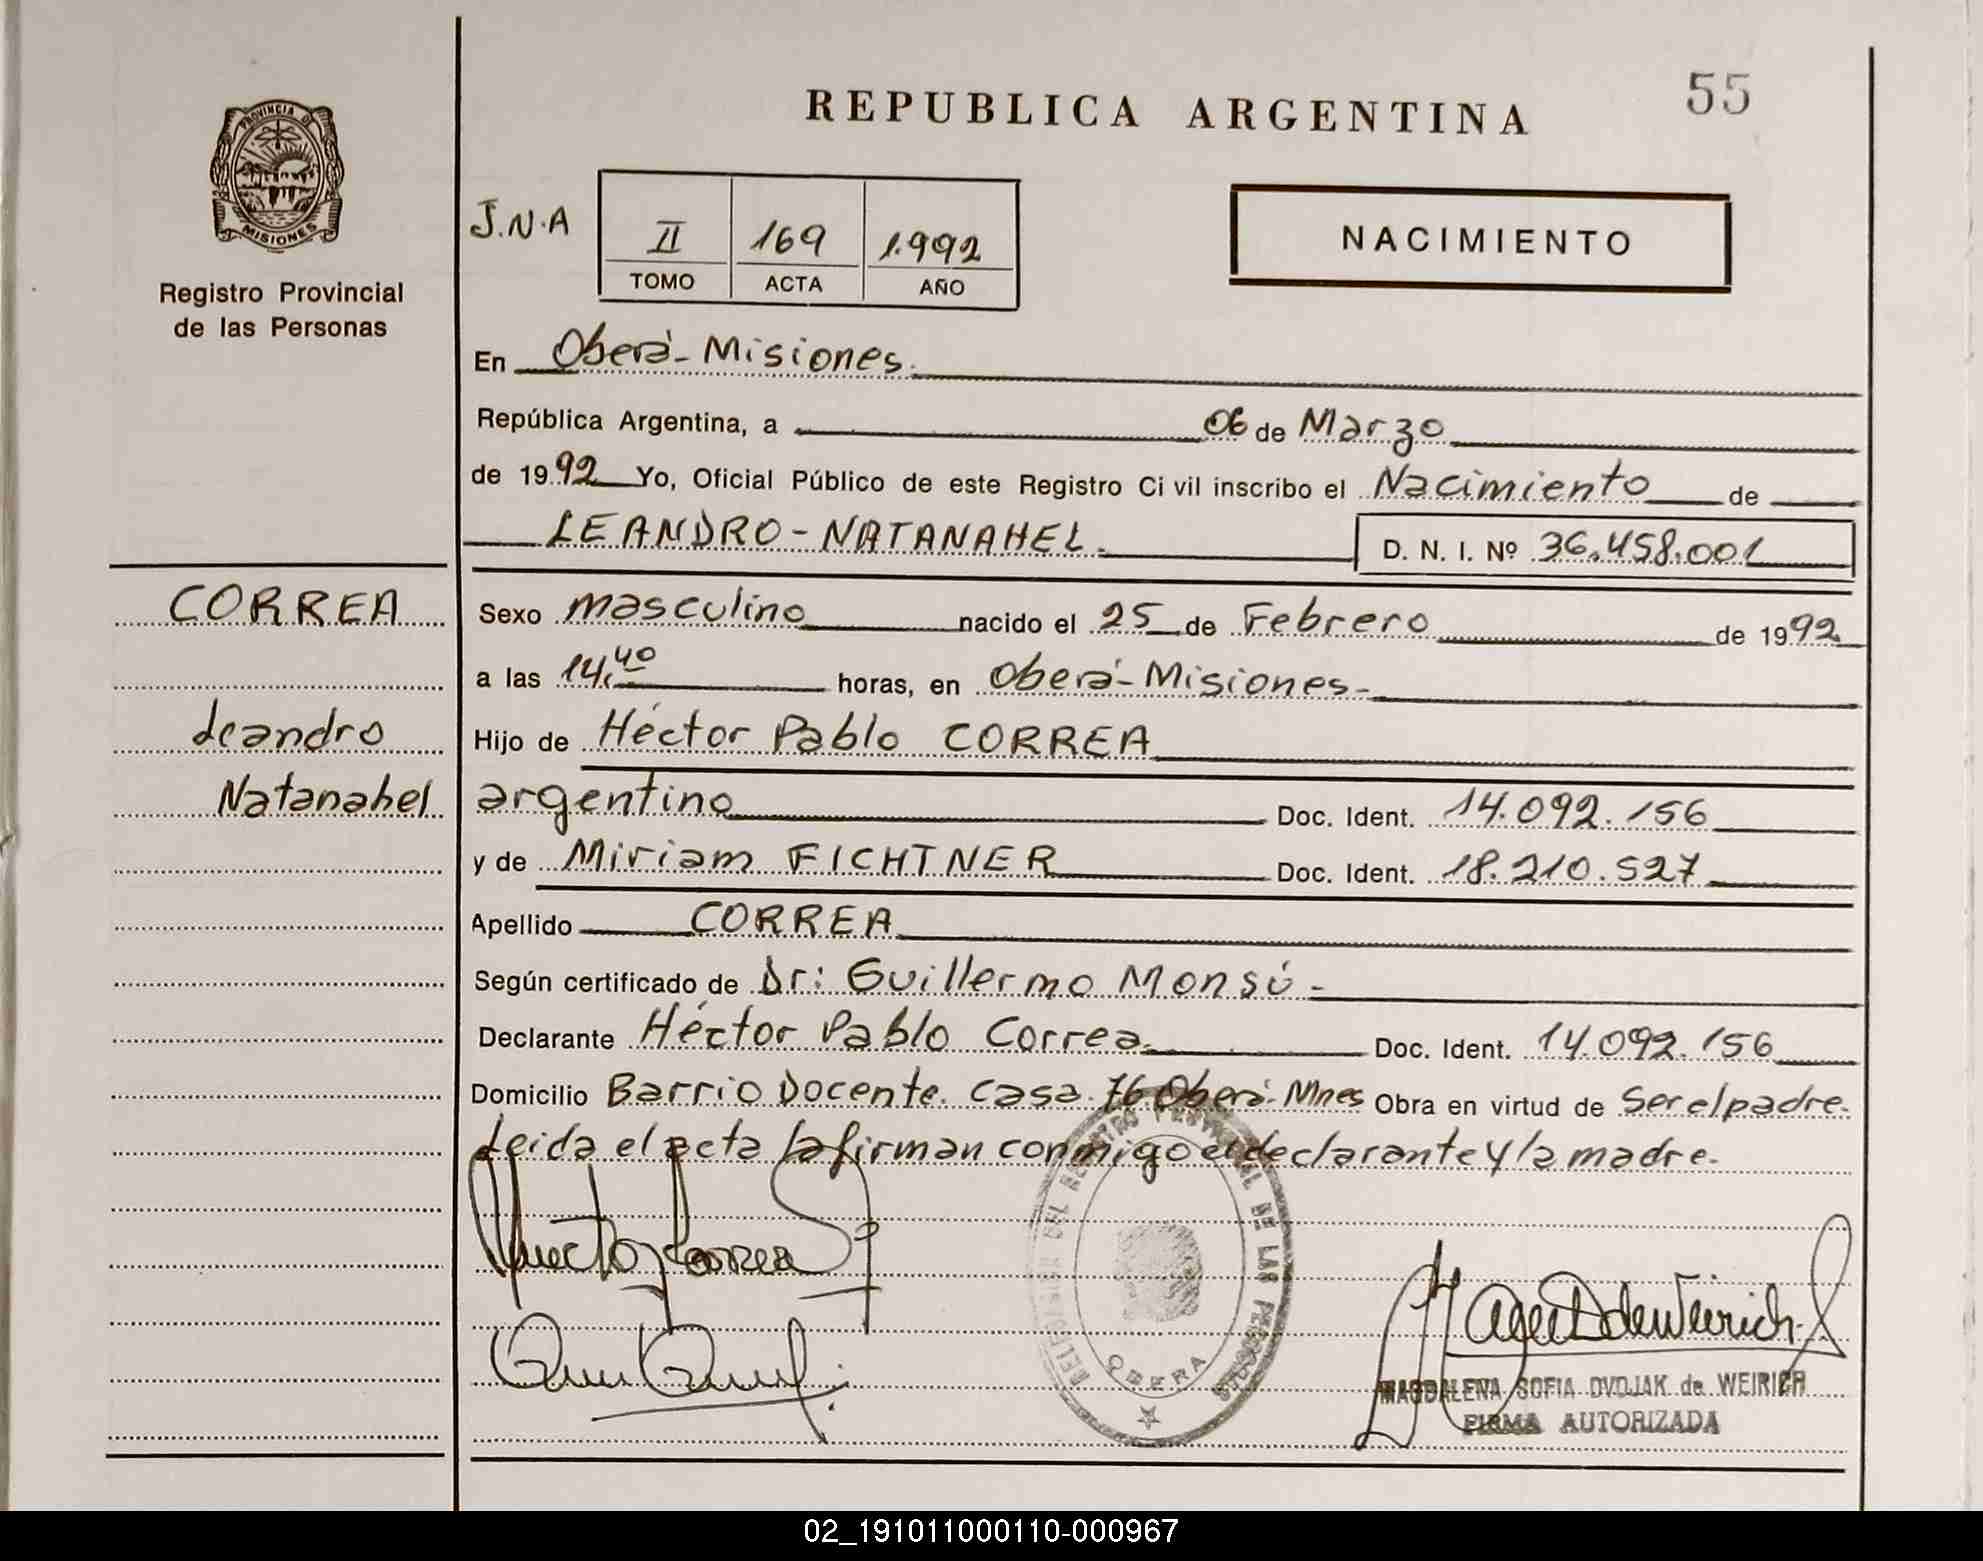 REPUBLICA ARGENTINA
55
PROVINCIA DE
MISIONES
Registro Provincial
de las Personas
J.N.A
II 169 1.992
TOMO ACTA AÑO
NACIMIENTO
En Oberá-Misiones.
República Argentina, a 06 de Marzo
de 1992 Yo, Oficial Público de este Registro Civil inscribo el Nacimiento de
LEANDRO-NATANAHEL. D. N. I. Nº 36.458.001
CORREA
Leandro
Natanahel
Sexo masculino nacido el 25 de Febrero de 1992
a las 14,40 horas, en Oberá-Misiones-
Hijo de Héctor Pablo CORREA
argentino Doc. Ident. 14.092.156
y de Miriam FICHTNER Doc. Ident. 18.210.527
Apellido CORREA
Según certificado de Dr: Guillermo Monsú-
Declarante Héctor Pablo Correa. Doc. Ident. 14.092.156
Domicilio Barrio Docente. Casa 76 Oberá-Mnes Obra en virtud de Ser el padre.
Leida el acta la firman conmigo el declarante y la madre.
DELEGACION DEL REGISTRO PROVINCIAL DE LAS PERSONAS
OBERA
MAGDALENA SOFIA DVOJAK de WEIRICH
FIRMA AUTORIZADA
02_191011000110-000967